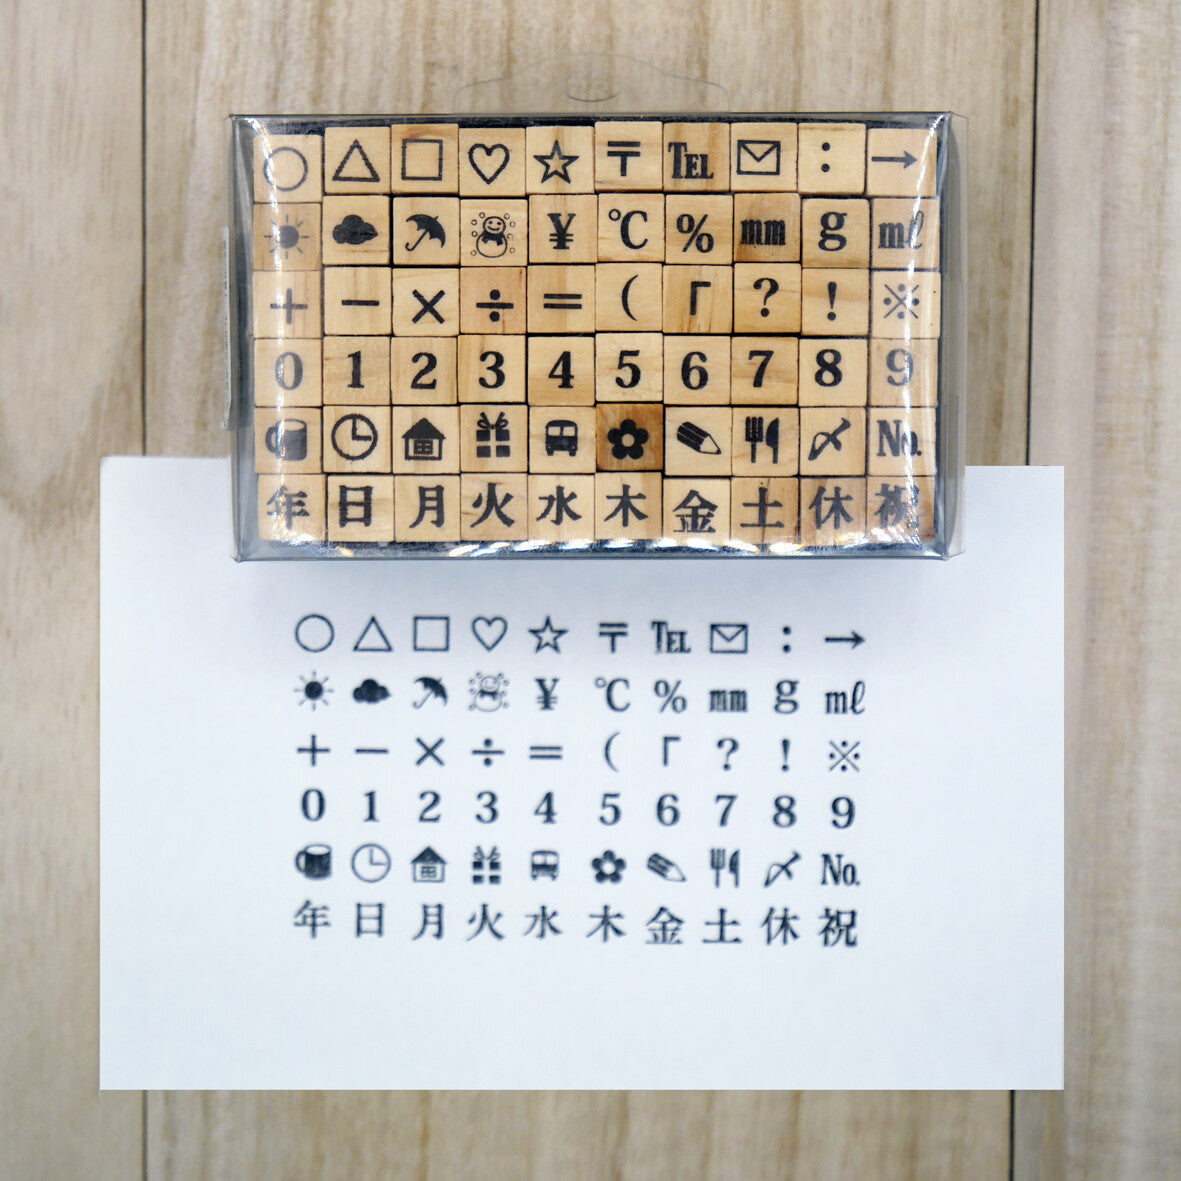 ○ △ □ ♡ ☆ 〒 TEL ✉ : →
☀ ☁ ☂ ☃ ¥ ℃ % mm g mℓ
+ − × ÷ = ( 「 ? ! ※
0 1 2 3 4 5 6 7 8 9
〆 No.
年 日 月 火 水 木 金 土 休 祝
○ △ □ ♡ ☆ 〒 TEL ✉ : →
☀ ☁ ☂ ☃ ¥ ℃ % mm g mℓ
+ − × ÷ = ( 「 ? ! ※
0 1 2 3 4 5 6 7 8 9
〆 No.
年 日 月 火 水 木 金 土 休 祝